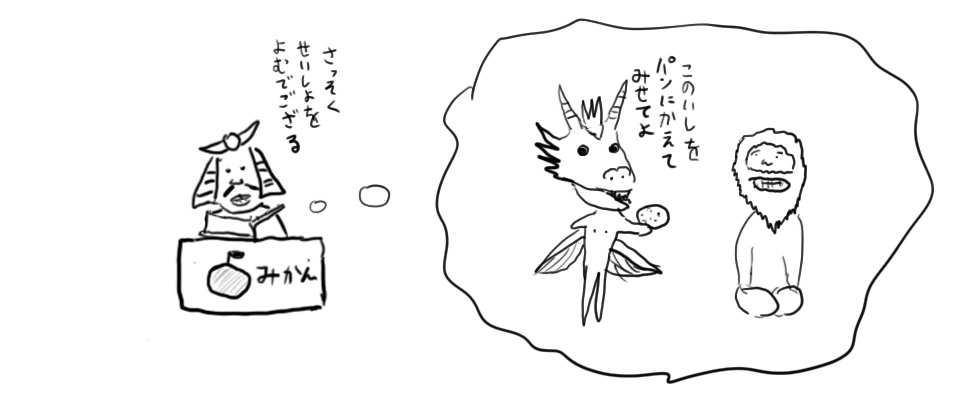 さっそく
せいしょを
よむでござる
みかん
このいしを
パンにかえて
みせてよ